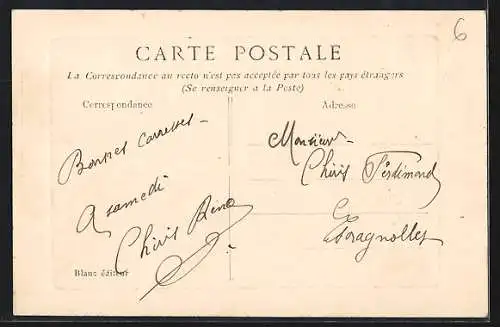 6
CARTE POSTALE
La Correspondance au recto n'est pas acceptée par tous les pays étrangers
(Se renseigner à la Poste)
Correspondance
Adresse
Bonnes Caresses -
A samedi
Chiris René
Monsieur
Chiris Ferdinand
Escragnolles
Blanc éditeur